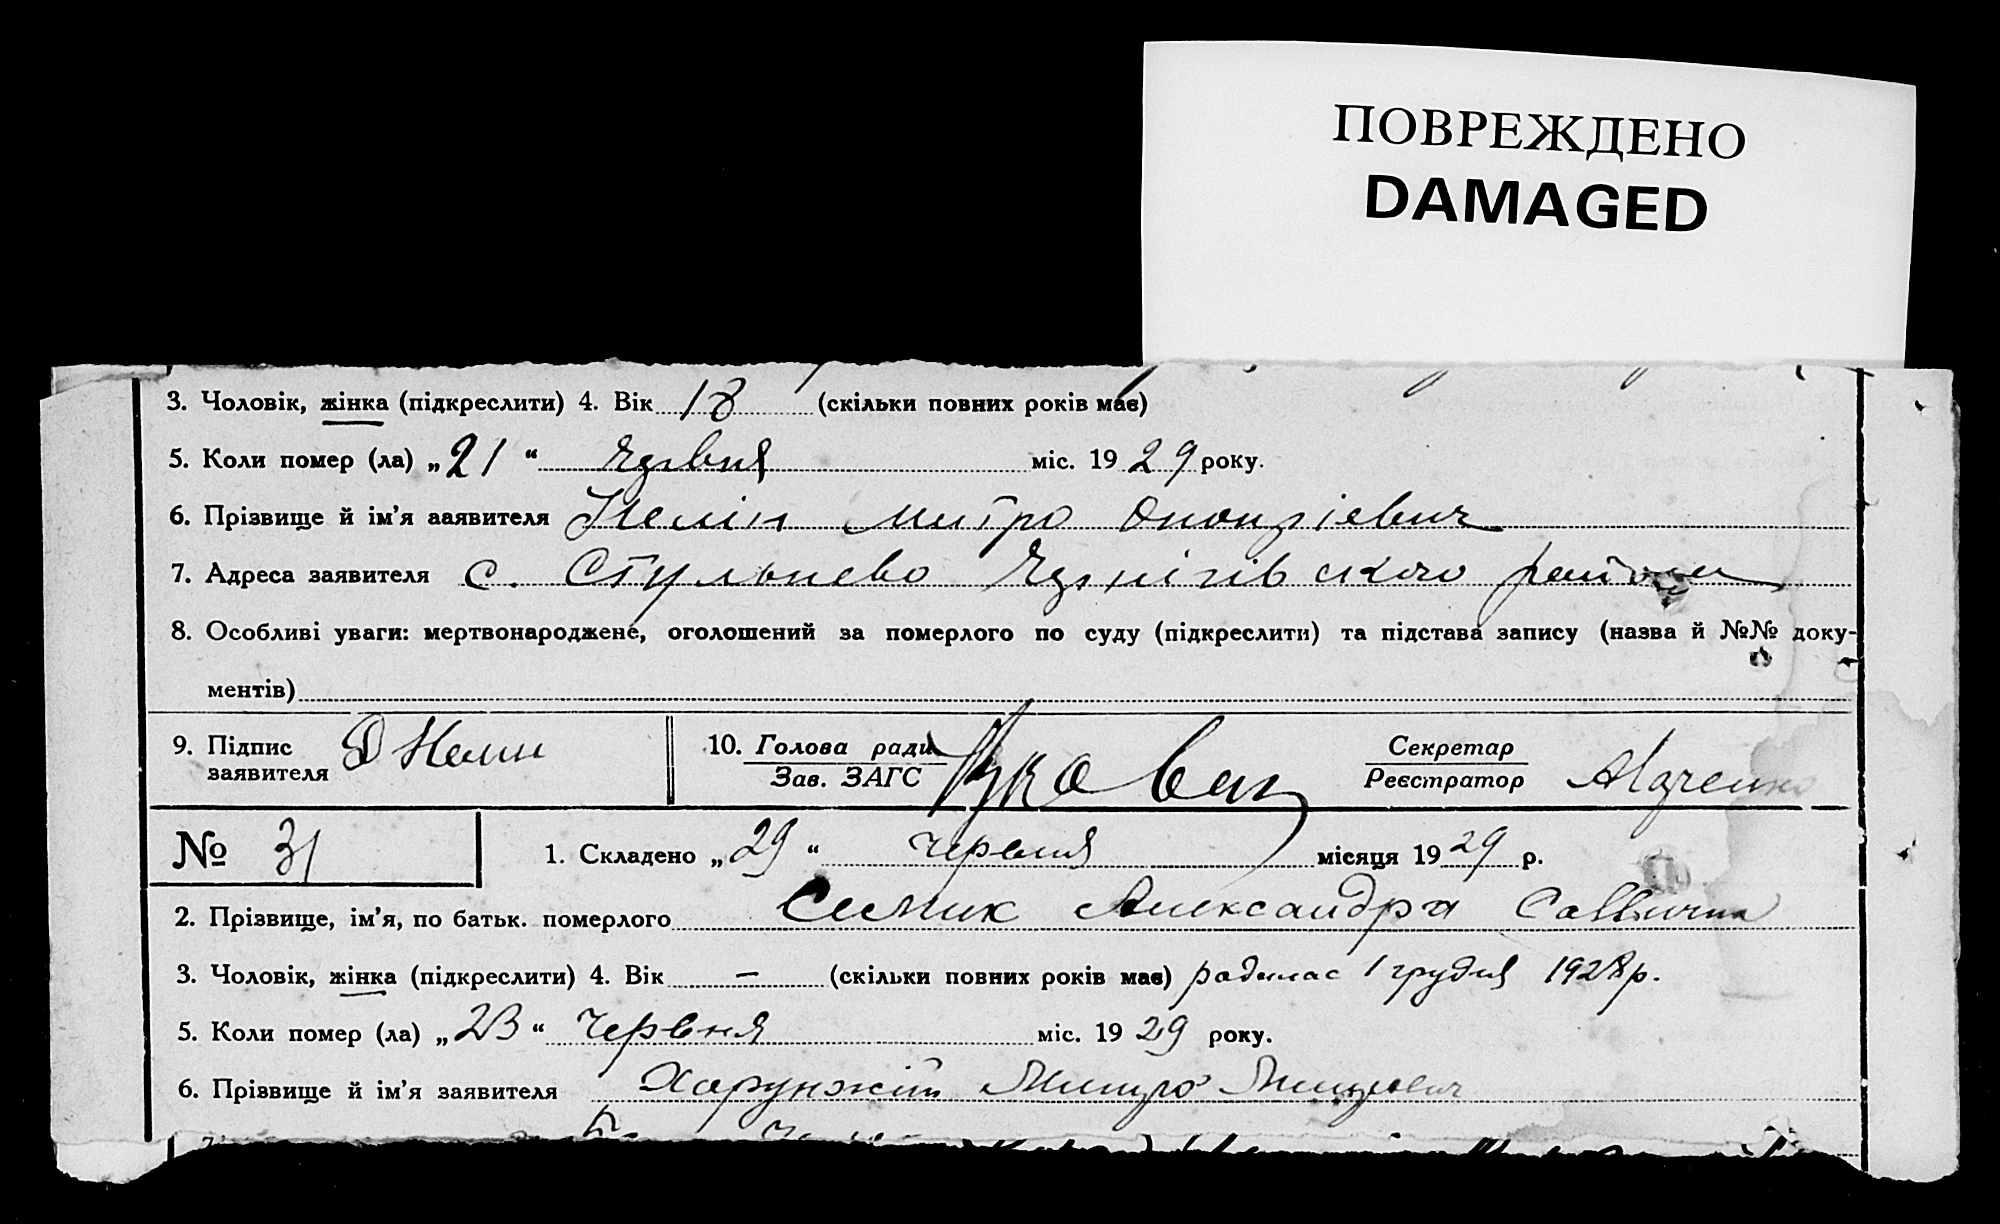 ПОВРЕЖДЕНО
DAMAGED
3. Чоловік, жінка (підкреслити) 4. Вік 18 (скільки повних років має)
5. Коли помер (ла) „21“ червня міс. 1929 року.
6. Прізвище й ім’я заявителя Митро
7. Адреса заявителя с. Стульнево Чернігівського району
8. Особливі уваги: мертвонароджене, оголошений за померлого по суду (підкреслити) та підстава запису (назва й №№ доку-
ментів)
9. Підпис заявителя 10. Голова ради Секретар
Зав. ЗАГС Реєстратор
№ 31 1. Складено „29“ червня місяця 1929 р.
2. Прізвище, ім’я, по батьк. померлого Семик Александра Саввична
3. Чоловік, жінка (підкреслити) 4. Вік – (скільки повних років має) радилас 1 грудня 1928 р.
5. Коли помер (ла) „23“ Червня міс. 1929 року.
6. Прізвище й ім’я заявителя Харунжій Митро